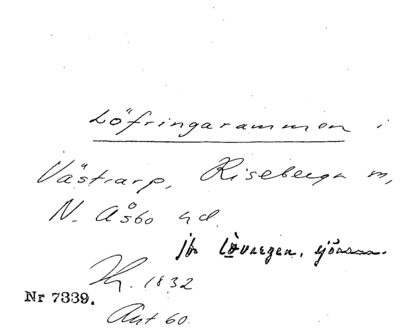 Löfringarammen i
Västrarp, Riseberga m,
N. Åsbo hd.
jfr Lövaegen, sjöram.
Kt. 1832
Nr 7339.
Akt 60.